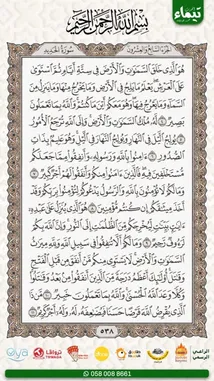 تيماء
بسم الله الرحمن الرحيم
الجزء السابع والعشرون
سورة الحديد
هُوَ ٱلَّذِي خَلَقَ ٱلسَّمَٰوَٰتِ وَٱلۡأَرۡضَ فِي سِتَّةِ أَيَّامٖ ثُمَّ ٱسۡتَوَىٰ
عَلَى ٱلۡعَرۡشِۖ يَعۡلَمُ مَا يَلِجُ فِي ٱلۡأَرۡضِ وَمَا يَخۡرُجُ مِنۡهَا وَمَا يَنزِلُ مِنَ
ٱلسَّمَآءِ وَمَا يَعۡرُجُ فِيهَاۖ وَهُوَ مَعَكُمۡ أَيۡنَ مَا كُنتُمۡۚ وَٱللَّهُ بِمَا تَعۡمَلُونَ
بَصِيرٞ ٤ لَّهُۥ مُلۡكُ ٱلسَّمَٰوَٰتِ وَٱلۡأَرۡضِۚ وَإِلَى ٱللَّهِ تُرۡجَعُ ٱلۡأُمُورُ
٥ يُولِجُ ٱلَّيۡلَ فِي ٱلنَّهَارِ وَيُولِجُ ٱلنَّهَارَ فِي ٱلَّيۡلِۚ وَهُوَ عَلِيمُۢ بِذَاتِ
ٱلصُّدُورِ ٦ ءَامِنُواْ بِٱللَّهِ وَرَسُولِهِۦ وَأَنفِقُواْ مِمَّا جَعَلَكُم
مُّسۡتَخۡلَفِينَ فِيهِۖ فَٱلَّذِينَ ءَامَنُواْ مِنكُمۡ وَأَنفَقُواْ لَهُمۡ أَجۡرٞ كَبِيرٞ ٧
وَمَا لَكُمۡ لَا تُؤۡمِنُونَ بِٱللَّهِ وَٱلرَّسُولُ يَدۡعُوكُمۡ لِتُؤۡمِنُواْ بِرَبِّكُمۡ وَقَدۡ
أَخَذَ مِيثَٰقَكُمۡ إِن كُنتُم مُّؤۡمِنِينَ ٨ هُوَ ٱلَّذِي يُنَزِّلُ عَلَىٰ عَبۡدِهِۦٓ
ءَايَٰتِۭ بَيِّنَٰتٖ لِّيُخۡرِجَكُم مِّنَ ٱلظُّلُمَٰتِ إِلَى ٱلنُّورِۚ وَإِنَّ ٱللَّهَ بِكُمۡ
لَرَءُوفٞ رَّحِيمٞ ٩ وَمَا لَكُمۡ أَلَّا تُنفِقُواْ فِي سَبِيلِ ٱللَّهِ وَلِلَّهِ مِيرَٰثُ
ٱلسَّمَٰوَٰتِ وَٱلۡأَرۡضِۚ لَا يَسۡتَوِي مِنكُم مَّنۡ أَنفَقَ مِن قَبۡلِ ٱلۡفَتۡحِ
وَقَٰتَلَۚ أُوْلَٰٓئِكَ أَعۡظَمُ دَرَجَةٗ مِّنَ ٱلَّذِينَ أَنفَقُواْ مِنۢ بَعۡدُ وَقَٰتَلُواْۚ
وَكُلّٗا وَعَدَ ٱللَّهُ ٱلۡحُسۡنَىٰۚ وَٱللَّهُ بِمَا تَعۡمَلُونَ خَبِيرٞ ١٠ مَّن ذَا
ٱلَّذِي يُقۡرِضُ ٱللَّهَ قَرۡضًا حَسَنٗا فَيُضَٰعِفَهُۥ لَهُۥ وَلَهُۥٓ أَجۡرٞ كَرِيمٞ ١١
٥٣٨
الراعي
الرسمي
058 008 8661